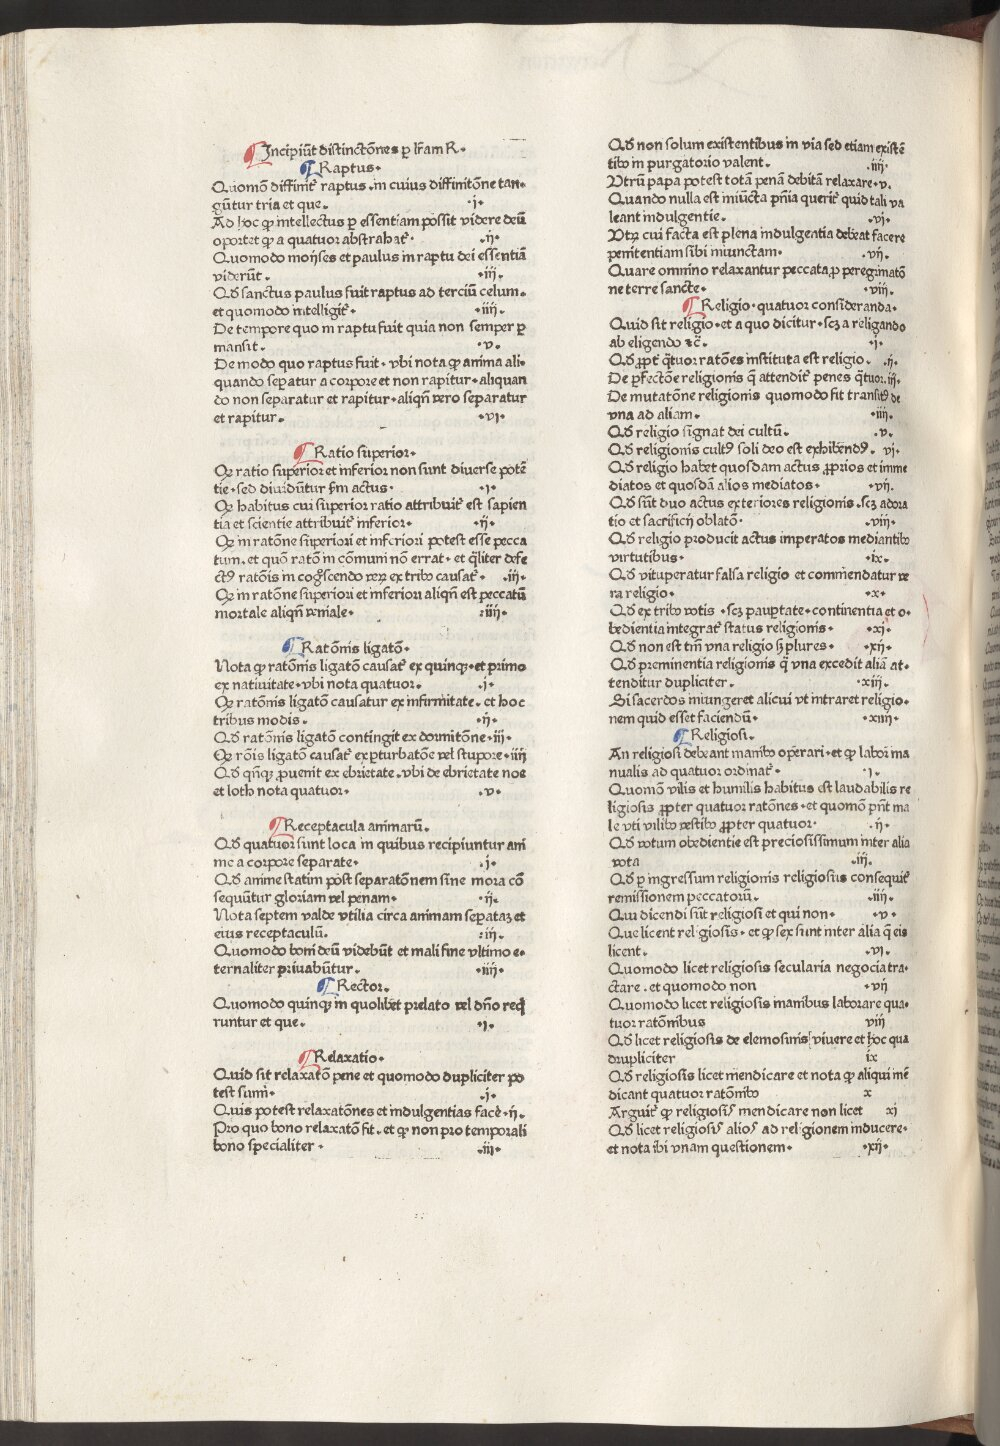 ¶Incipiūt distinctōnes ꝑ lr̄am R·
¶Raptus·
Quomō diffinit᷑ raptus·in cuius diffinitōne tan⸗
gūtur tria et que. ·i·
Ad hoc ꝙ intellectus ꝑ essentiam possit videre deū
oportet ꝙ a quatuor abstrahat᷑· ·ij·
Quomodo moyses et paulus in raptu dei essentiā
viderūt. ·iij·
Qd̄ sanctus paulus fuit raptus ad terciū celum·
et quomodo intelligit᷑· ·iiij·
De tempore quo in raptu fuit quia non semper ꝑ
mansit. ·v·
De modo quo raptus fuit·vbi nota ꝙ anima ali⸗
quando seꝑatur a corpore et non rapitur·aliquan
do non separatur et rapitur·aliqn̄ vero separatur
et rapitur. ·vi·
¶Ratio superior·
Qꝛ ratio superior et inferior non sunt diverse potē
tie·sed diuidūtur ẜm actus· ·i·
Qꝛ habitus cui superior ratio attribuit᷑ est sapien
tia et scientie attribuit᷑ inferior· ·ij·
Qꝛ in ratōne superiori et inferiori potest esse pecca
tum·et quō ratō in cōmuni nō errat·et qͣliter defe
ctꝰ ratōis in cogͦscendo veꝝ ex tribꝰ causat᷑· ·iij·
Qꝛ in ratōne superiori et inferiori aliqn̄ est peccatū
mortale aliqn̄ veniale· ·iiij·
¶Ratōnis ligatō·
Nota ꝙ ratōnis ligatō causat᷑ ex quinqꝫ·et primo
ex natiuitate·vbi nota quatuor. ·i·
Qꝛ ratōnis ligatō causatur ex infirmitate·et hoc
tribus modis. ·ij·
Qd̄ ratōnis ligatō contingit ex dormitōne·iij·
Qꝛ rōis ligatō causat᷑ exꝑturbatōe vel stupore·iiij
Qd̄ qn̄qꝫ ꝓuenit ex ebrietate·vbi de ebrietate noe
et loth nota quatuor· ·v·
¶Receptacula animarū.
Qd̄ quatuor sunt loca in quibus recipiuntur ani
me a corpore separate· ·i·
Qd̄ anime statim post separatōnem sine mora cō
sequūtur gloriam vel penam· ·ij·
Nota septem valde vtilia circa animam seꝑataꝫ et
eius receptaculū. ·iij·
Quomodo boni deū videbūt et mali fine vltimo e⸗
ternaliter priuabūtur. ·iiij·
¶Rector·
Quomodo quinqꝫ in quolibet prelato vel dn̄o req̄
runtur et que· ·i·
¶Relaxatio·
Quid sit relaxatō pene et quomodo dupliciter po
test sumi· ·i·
Quis potest relaxatōnes et indulgentias facē·ij·
Pro quo bono relaxatō fit·et ꝙ non pro temporali
bono specialiter· ·iij·
Qd̄ non solum existentibus in via sed etiam existē
tibꝰ in purgatorio valent. ·iiij·
Vtrū papa potest totā penā debitā relaxare·v·
Quando nulla est iniūcta pn̄ia querit᷑ quid tali va
leant indulgentie. ·vi·
Vtꝝ cui facta est plena indulgentia debeat facere
penitentiam sibi iniunctam· ·vij·
Quare omnino relaxantur peccata ꝓ peregrinatō
ne terre sancte· ·viij·
¶Religio·quatuor consideranda·
Quid sit religio·et a quo dicitur·scꝫ a religando
ab eligendo ⁊c̄. ·i·
Qd̄ ꝓpt᷑ qͣtuor ratōes instituta est religio. ·ij·
De ꝑfectōe religionis q̄ attendit᷑ penes qͣtuor·iij·
De mutatōne religionis quomodo fit transitꝰ de
vna ad aliam· ·iiij·
Qd̄ religio signat dei cultū· ·v·
Qd̄ religionis cultꝰ soli deo est exhibendꝰ· vi·
Qd̄ religio habet quosdam actus ꝓprios et imme
diatos et quosdā alios mediatos· ·vij·
Qd̄ sūt duo actus exteriores religionis·scꝫ adora
tio et sacrificij oblatō· ·viij·
Qd̄ religio producit actus imperatos mediantibꝰ
virtutibus· ·ix·
Qd̄ vituperatur falsa religio et commendatur ve
ra religio· ·x·
Qd̄ ex tribꝰ votis·scꝫ pauꝑtate·continentia et o⸗
bedientia integrat᷑ status religionis· ·xi·
Qd̄ non est tm̄ vna religio sꝫ plures· ·xij·
Qd̄ preminentia religionis qͣ vna excedit aliā at⸗
tenditur dupliciter. ·xiij·
Si sacerdos iniungeret alicui vt intraret religio⸗
nem quid esset faciendū· ·xiiij·
¶Religiosi·
An religiosi debeant manibꝰ operari·et ꝙ labor ma
nualis ad quatuor ordinat᷑· ·i·
Quomō vilis et humilis habitus est laudabilis re
ligiosis ꝓpter quatuor ratōnes·et quomō pn̄t ma
le vti vilibꝰ vestibꝰ ꝓpter quatuor· ·ij·
Qd̄ votum obedientie est preciosissimum inter alia
vota ·iij·
Qd̄ ꝑ ingressum religionis religiosus consequit᷑
remissionem peccatorū. ·iiij·
Qui dicendi sūt religiosi et qui non· ·v·
Que licent religiosis·et ꝙ sex sunt inter alia q̄ eis
licent. ·vi·
Quomodo licet religiosis secularia negocia tra⸗
ctare·et quomodo non ·vij
Quomodo licet religiosis manibus laborare qua⸗
tuor ratōnibus viij
Qd̄ licet religiosis de elemosinis viuere et hoc qua
drupliciter ix
Qd̄ religiosis licet mendicare et nota ꝙ aliqui mē
dicant quatuor ratōnibꝰ x
Arguit᷑ ꝙ religiosis mendicare non licet xi
Qd̄ licet religiosis alios ad religionem inducere·
et nota ibi vnam questionem· ·xij·